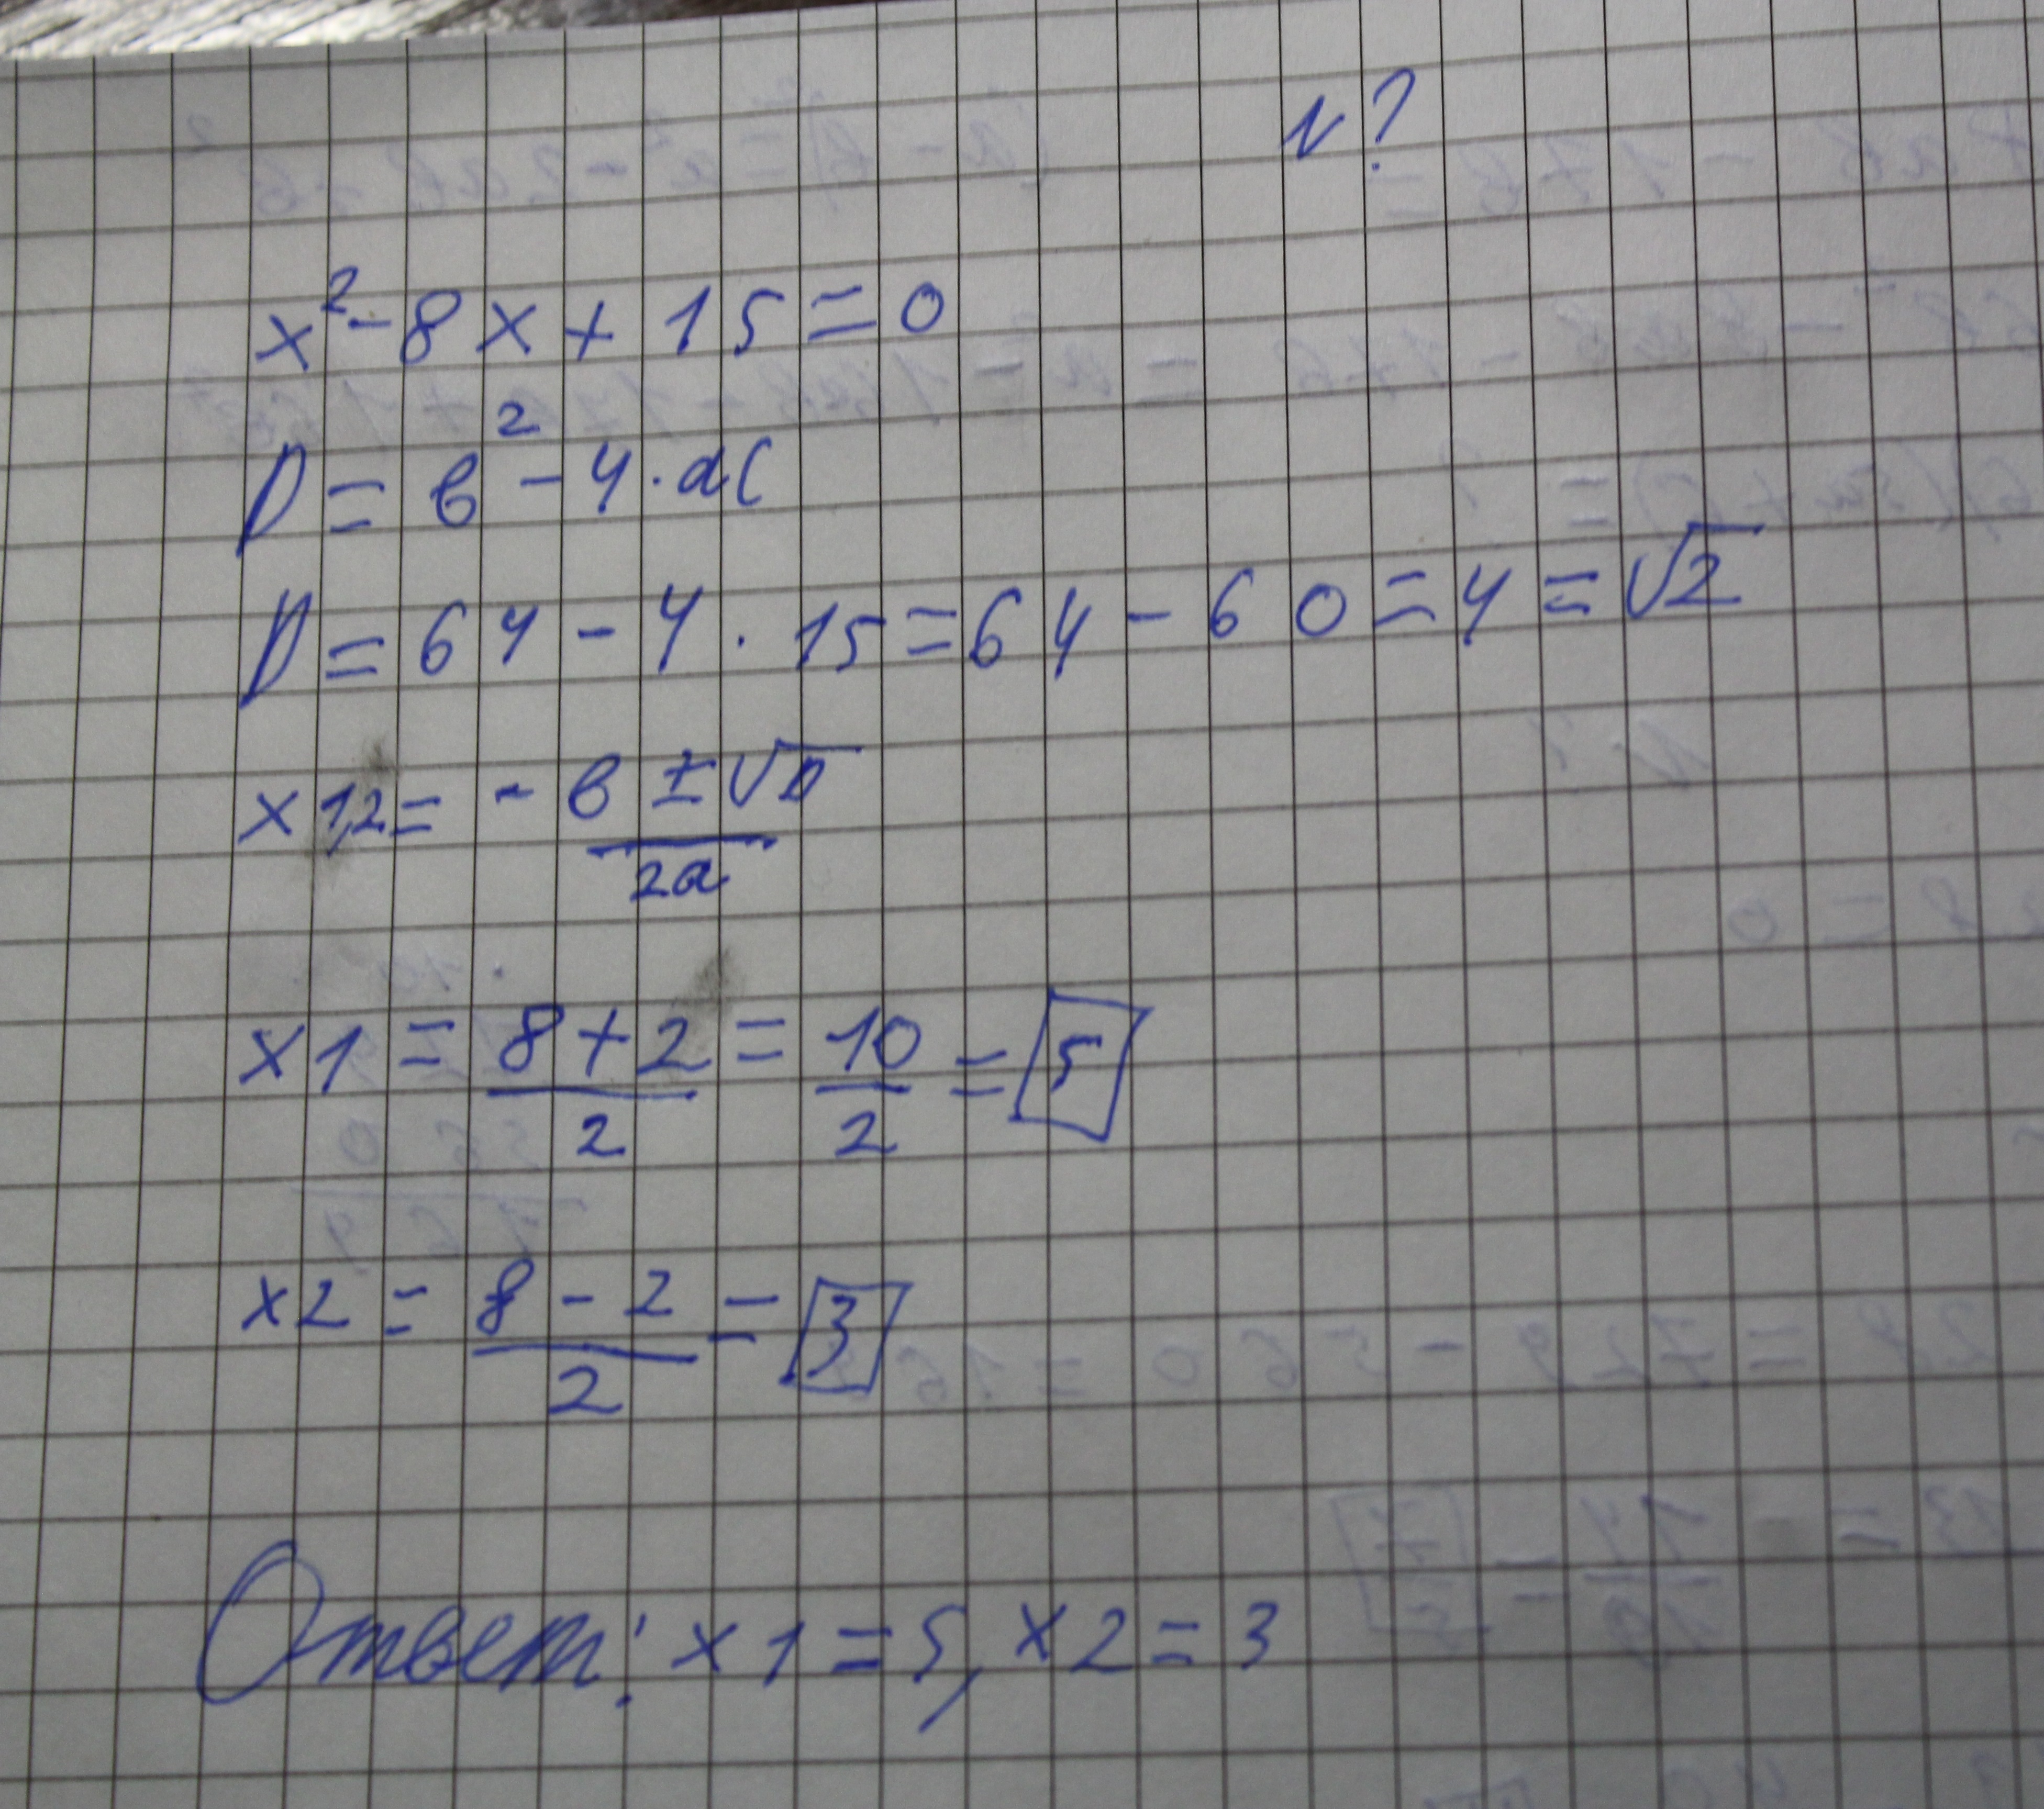 N?
x²-8x+15=0
D=в²-4·ac
D=64-4·15=64-60=4=√2
x1,2=-в±√D/2a
x1=8+2/2=10/2=5
x2=8-2/2=3
Ответ: x1=5, x2=3